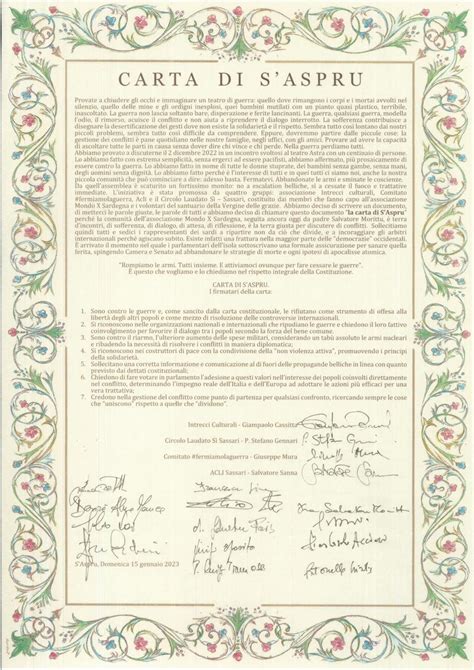 CARTA DI S’ASPRU
Provate a chiudere gli occhi e immaginare un teatro di guerra: quello dove rimangono i corpi e i mortai avvolti nel
silenzio, quello delle mine e gli ordigni inesplosi, quei bambini mutilati con un pianto quasi plastico, terribile,
inascoltato. La guerra non lascia soltanto bare, disperazione e ferite lancinanti. La guerra, qualsiasi guerra, modella
l’odio, il rimorso, acuisce il conflitto e non aiuta a riprendere il dialogo interrotto. La sofferenza contribuisce a
disegnare la desertificazione dei gesti dove non esiste la solidarietà e il rispetto. Sembra tutto così lontano dai nostri
piccoli problemi, sembra tutto così difficile da comprendere. Eppure, dovremmo partire dalle piccole cose: la
gestione dei conflitti è parte quotidiana nelle nostre famiglie, negli uffici, con gli amici. Provare ad avere la capacità
di ascoltare tutte le parti in causa senza dover dire chi vince e chi perde. Nella guerra perdiamo tutti.
Abbiamo provato a discuterne il 2 dicembre 2022 in un incontro svoltosi al teatro Astra con un centinaio di persone.
Lo abbiamo fatto con estrema semplicità, senza ergerci ad essere pacifisti, abbiamo affermato, più pessimisticamente
di essere contro la guerra. Lo abbiamo fatto in nome di tutte le donne stuprate, dei bambini senza gambe, senza mani,
degli uomini senza dignità. Lo abbiamo fatto perché è l’interesse di tutti e in quei tutti ci siamo noi, anche la nostra
piccola comunità che può cominciare a dire: adesso basta. Fermatevi. Abbandonate le armi e sminate le coscienze.
Da quell’assemblea è scaturito un fortissimo monito: no a escalation belliche, si a cessate il fuoco e trattative
immediate. L’iniziativa è stata promossa da quattro gruppi: associazione Intrecci culturali, Comitato
#fermiamolaguerra, Acli e il Circolo Laudato Sì – Sassari, costituito dai membri che fanno capo all’associazione
Mondo X Sardegna e volontari del santuario della Vergine delle grazie. Abbiamo deciso di scrivere un documento,
di metterci le parole giuste, le parole di tutti e abbiamo deciso di chiamare questo documento "la carta di S’Aspru"
perché la comunità dell’associazione Mondo X Sardegna, seguita ancora oggi da padre Salvatore Morittu, è terra
d’incontri, di sofferenza, di dialogo, di attesa, di riflessione, è la terra giusta per discutere di conflitti. Sollecitiamo
quindi tutti e sedici i rappresentanti dei sardi a ripartire da ciò che divide, e a incoraggiare gli arbitrati
internazionali perché agiscano subito. Esiste infatti una frattura nella maggior parte delle 'democrazie' occidentali.
È arrivato il momento nel quale i parlamentari dell’isola sottoscrivano una formale assicurazione per sanare quella
ferita, spingendo Camera e Senato ad abbandonare le strategie di morte e ogni ipotesi di apocalisse atomica.
"Rompiamo le armi. Tutti insieme. E attiviamoci ovunque per fare cessare le guerre".
È questo che vogliamo e lo chiediamo nel rispetto integrale della Costituzione.
CARTA DI S’ASPRU.
I firmatari della carta:
1. Sono contro le guerre e, come sancito dalla carta costituzionale, le rifiutano come strumento di offesa alla
libertà degli altri popoli e come mezzo di risoluzione delle controversie internazionali.
2. Si riconoscono nelle organizzazioni nazionali e internazionali che ripudiano le guerre e chiedono il loro fattivo
coinvolgimento per favorire il dialogo tra i popoli secondo la forza del bene comune.
3. Sono contro il riarmo, l’ulteriore aumento delle spese militari, considerando un tabù assoluto le armi nucleari
e ribadendo la necessità di risolvere i conflitti in maniera diplomatica;
4. Si riconoscono nei costruttori di pace con la condivisione della "non violenza attiva", promuovendo i principi
della solidarietà.
5. Sollecitano una corretta informazione e comunicazione al di fuori delle propagande belliche in linea con quanto
previsto dai dettati costituzionali.
6. Chiedono di fare votare in parlamento l’adesione a questi valori nell’interesse dei popoli coinvolti direttamente
nel conflitto, determinando l’impegno reale dell’Italia e dell’Europa ad adottare le azioni più efficaci per una
vera trattativa.
7. Credono nella gestione del conflitto come punto di partenza per qualsiasi confronto, ricercando sempre le cose
che "uniscono" rispetto a quelle che "dividono".
Intrecci Culturali - Giampaolo Cassitta
Circolo Laudato Sì Sassari - P. Stefano Gennari
Comitato #fermiamolaguerra - Giuseppe Mura
ACLI Sassari - Salvatore Sanna
S’Aspru, Domenica 15 gennaio 2023